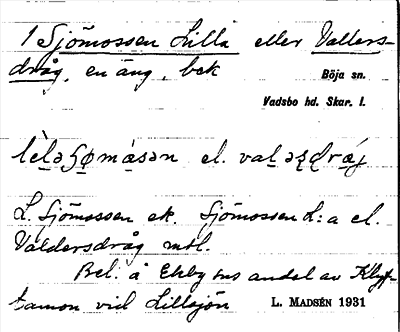 1 Sjömossen Lilla eller Vallers-
dråg, en äng, bek
Böja sn.
Vadsbo hd. Skar. l.
el.
L. Sjömossen ek. Sjömossen L:a el.
Valdersdråg mtl.
Bel. å Ekby ens andel av Klyf-
tamon vid Lillsjön
L. MADSÉN 1931